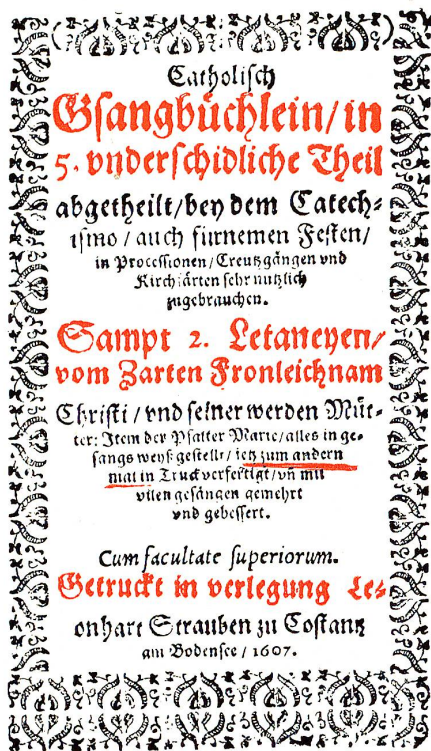 Catholisch
Gsangbüchlein/ in
5. vnderschidliche Theil
abgetheilt/ bey dem Catech⸗
ismo / auch fürnemen Festen/
in Processionen/ Creutzgängen vnd
Kirchfärten sehr nutzlich
zugebrauchen.
Sampt 2. Letaneyen/
vom Zarten Fronleichnam
Christi / vnd seiner werden Můt⸗
ter: Item der Psalter Marie/ alles in ge⸗
sangs weyß gestellt/ ietz zum andern
mal in Truck verfertigt/ vñ mit
vilen gesängen gemehrt
vnd gebessert.
Cum facultate superiorum.
Getruckt in verlegung Le⸗
onhart Strauben zu Costantz
am Bodensee / 1607.